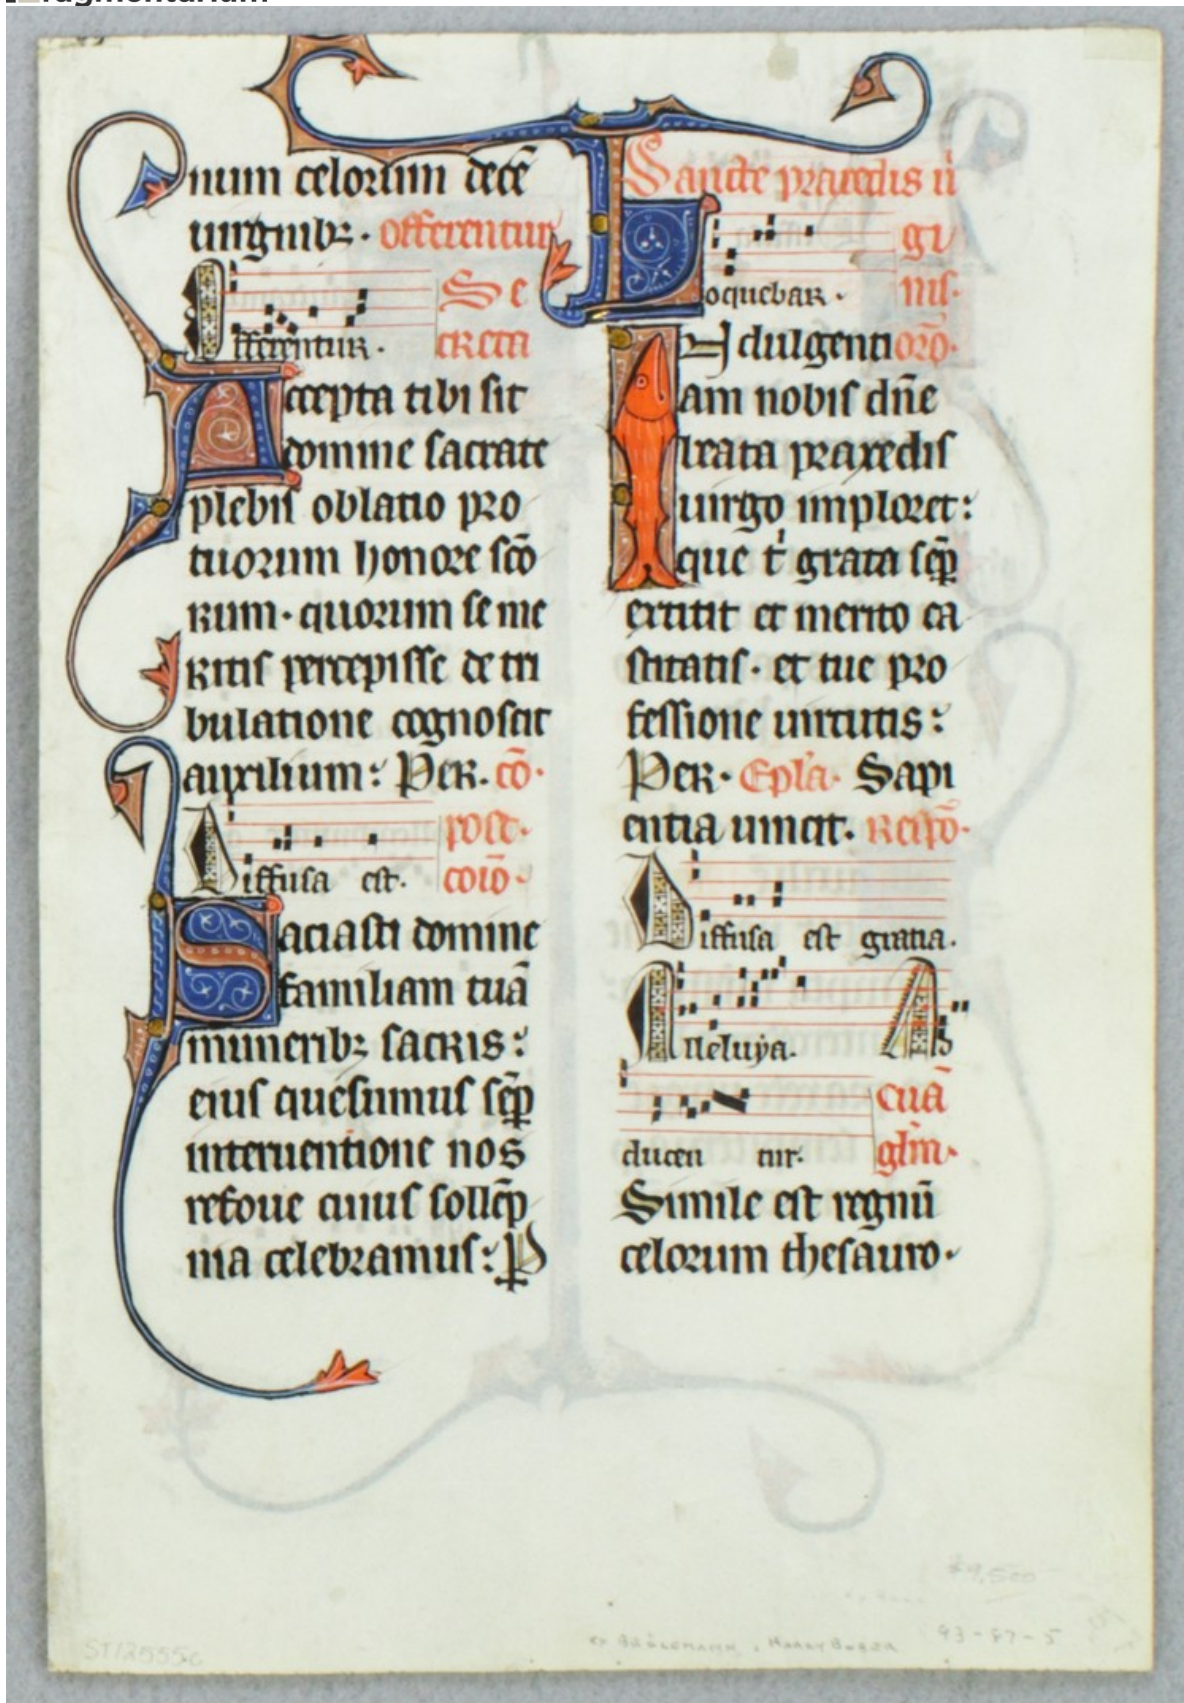 ragmentarium
num celorum decē
uirginibꝫ. offerentur
Offerentur. Se
creta
Accepta tibi sit
domine sacrate
plebis oblatio pro
tuorum honore scō
rum. quorum se me
ritis percepisse de tri
bulatione cognoscit
auxilium: Per. cō.
Diffusa est. post
coīo.
Saciasti domine
familiam tuā
muneribꝫ sacris:
eius quesumus sēp
interuentione nos
refoue cuius sollēp
nia celebramus: P
Sancte praxedis ūi
gi
Loquebar. nis.
Indulgenti orō.
am nobis dn̄e
beata praxedis
uirgo imploret:
que t̍ grata sēp
extitit et merito ca
stitatis. et tue pro
fessione uirtutis:
Per. Ep̄la. Sapi
entia uincit. Respō.
Diffusa est gratia.
Alleluya. Ad
ducen tur. cuā
glm̄.
Simile est regnū
celorum thesauro.
$9,500
93-87-5
ST12555c